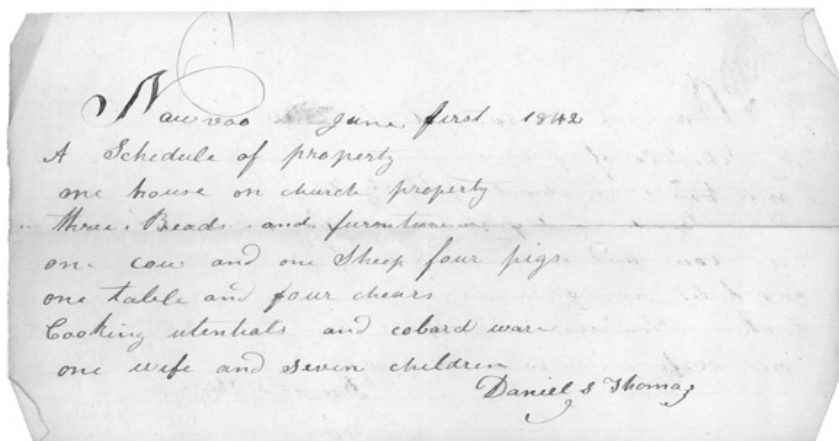 Nauvoo June first 1842
A Schedule of property
one house on church property
three Beads and furniture
one cow and one Sheep four pigs
one table and four chears
Cooking utentials and cobard ware
one wife and seven children
Daniel S Thomas